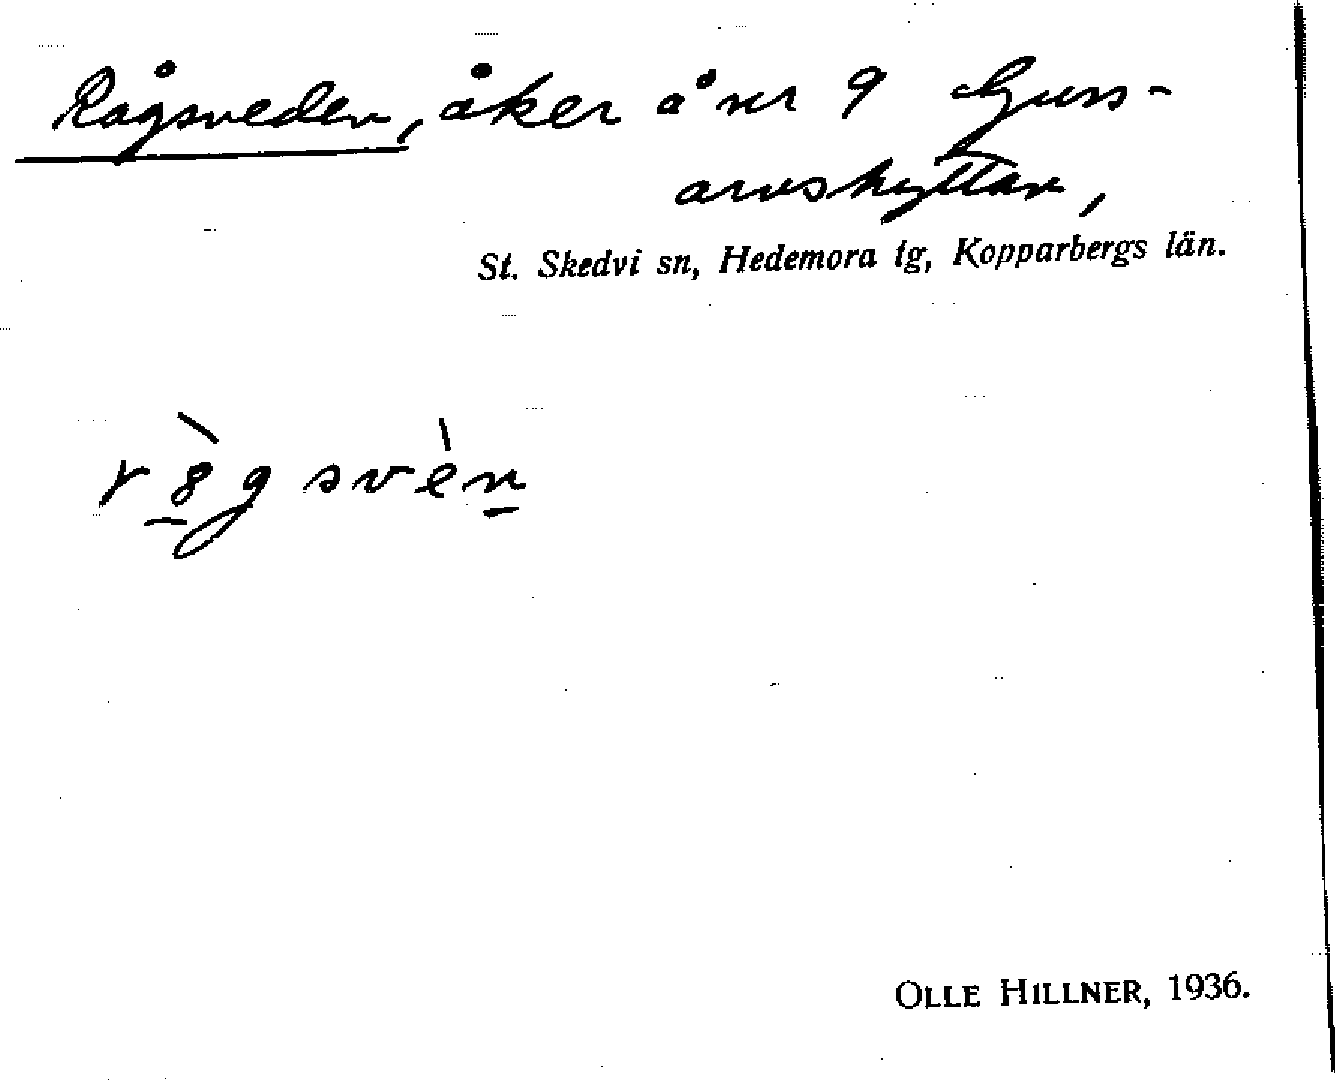 Rågsveden, åker å nr 9 Gjuss-
arvshyttan,
St. Skedvi sn, Hedemora tg, Kopparbergs län.
r8̀gsvèn
OLLE HILLNER, 1936.